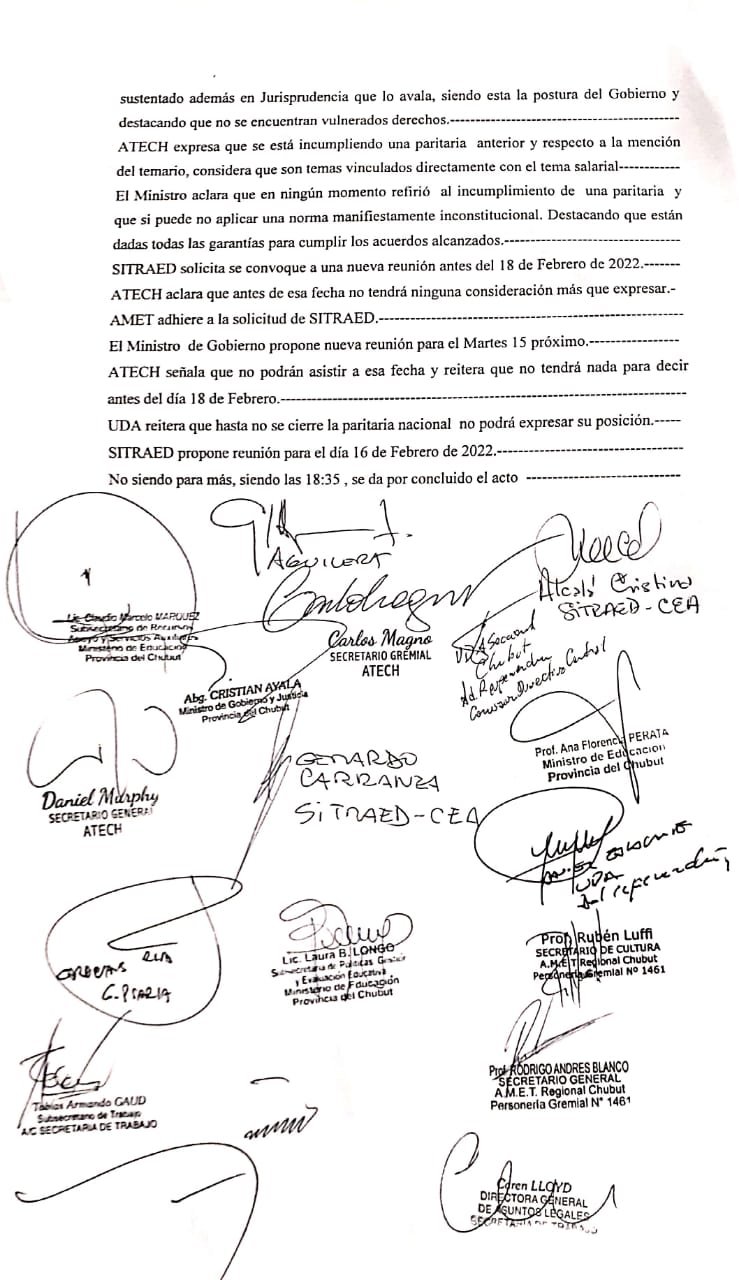 sustentado además en Jurisprudencia que lo avala, siendo esta la postura del Gobierno y
destacando que no se encuentran vulnerados derechos.----------------------------------------------
ATECH expresa que se está incumpliendo una paritaria anterior y respecto a la mención
del temario, considera que son temas vinculados directamente con el tema salarial------------
El Ministro aclara que en ningún momento refirió al incumplimiento de una paritaria y
que si puede no aplicar una norma manifiestamente inconstitucional. Destacando que están
dadas todas las garantías para cumplir los acuerdos alcanzados.-----------------------------------
SITRAED solicita se convoque a una nueva reunión antes del 18 de Febrero de 2022.-------
ATECH aclara que antes de esa fecha no tendrá ninguna consideración más que expresar.-
AMET adhiere a la solicitud de SITRAED.-------------------------------------------------------------
El Ministro de Gobierno propone nueva reunión para el Martes 15 próximo.------------------
ATECH señala que no podrán asistir a esa fecha y reitera que no tendrá nada para decir
antes del día 18 de Febrero.-------------------------------------------------------------------------------
UDA reitera que hasta no se cierre la paritaria nacional no podrá expresar su posición.-----
SITRAED propone reunión para el día 16 de Febrero de 2022.-------------------------------------
No siendo para más, siendo las 18:35 , se da por concluido el acto ------------------------------
AGUILERA
Alcalá Cristina
SITRAED-CEA
Lic. Claudio Marcelo MARQUEZ
Subsecretario de Recursos
Apoyo y Servicios Auxiliares
Ministerio de Educación
Provincia del Chubut
Carlos Magno
SECRETARIO GREMIAL
ATECH
UDA
Chubut
Consejo Directivo Central
Abg. CRISTIAN AYALA
Ministro de Gobierno y Justicia
Provincia del Chubut
Prof. Ana Florencia PERATA
Ministro de Educación
Provincia del Chubut
GERARDO
CARRANZA
SITRAED-CEA
Daniel Murphy
SECRETARIO GENERAL
ATECH
UDA
Lic. Laura B. LONGO
Subsecretaria de Políticas Gestión
y Evaluación Educativa
Ministerio de Educación
Provincia del Chubut
Prof. Rubén Luffi
SECRETARIO DE CULTURA
A.M.E.T Regional Chubut
Personería Gremial Nº 1461
Prof. RODRIGO ANDRES BLANCO
SECRETARIO GENERAL
A.M.E.T. Regional Chubut
Personería Gremial N° 1461
Tobias Armando GAUD
Subsecretario de Trabajo
A/C SECRETARIA DE TRABAJO
Caren LLOYD
DIRECTORA GENERAL
DE ASUNTOS LEGALES
SECRETARIA DE TRABAJO